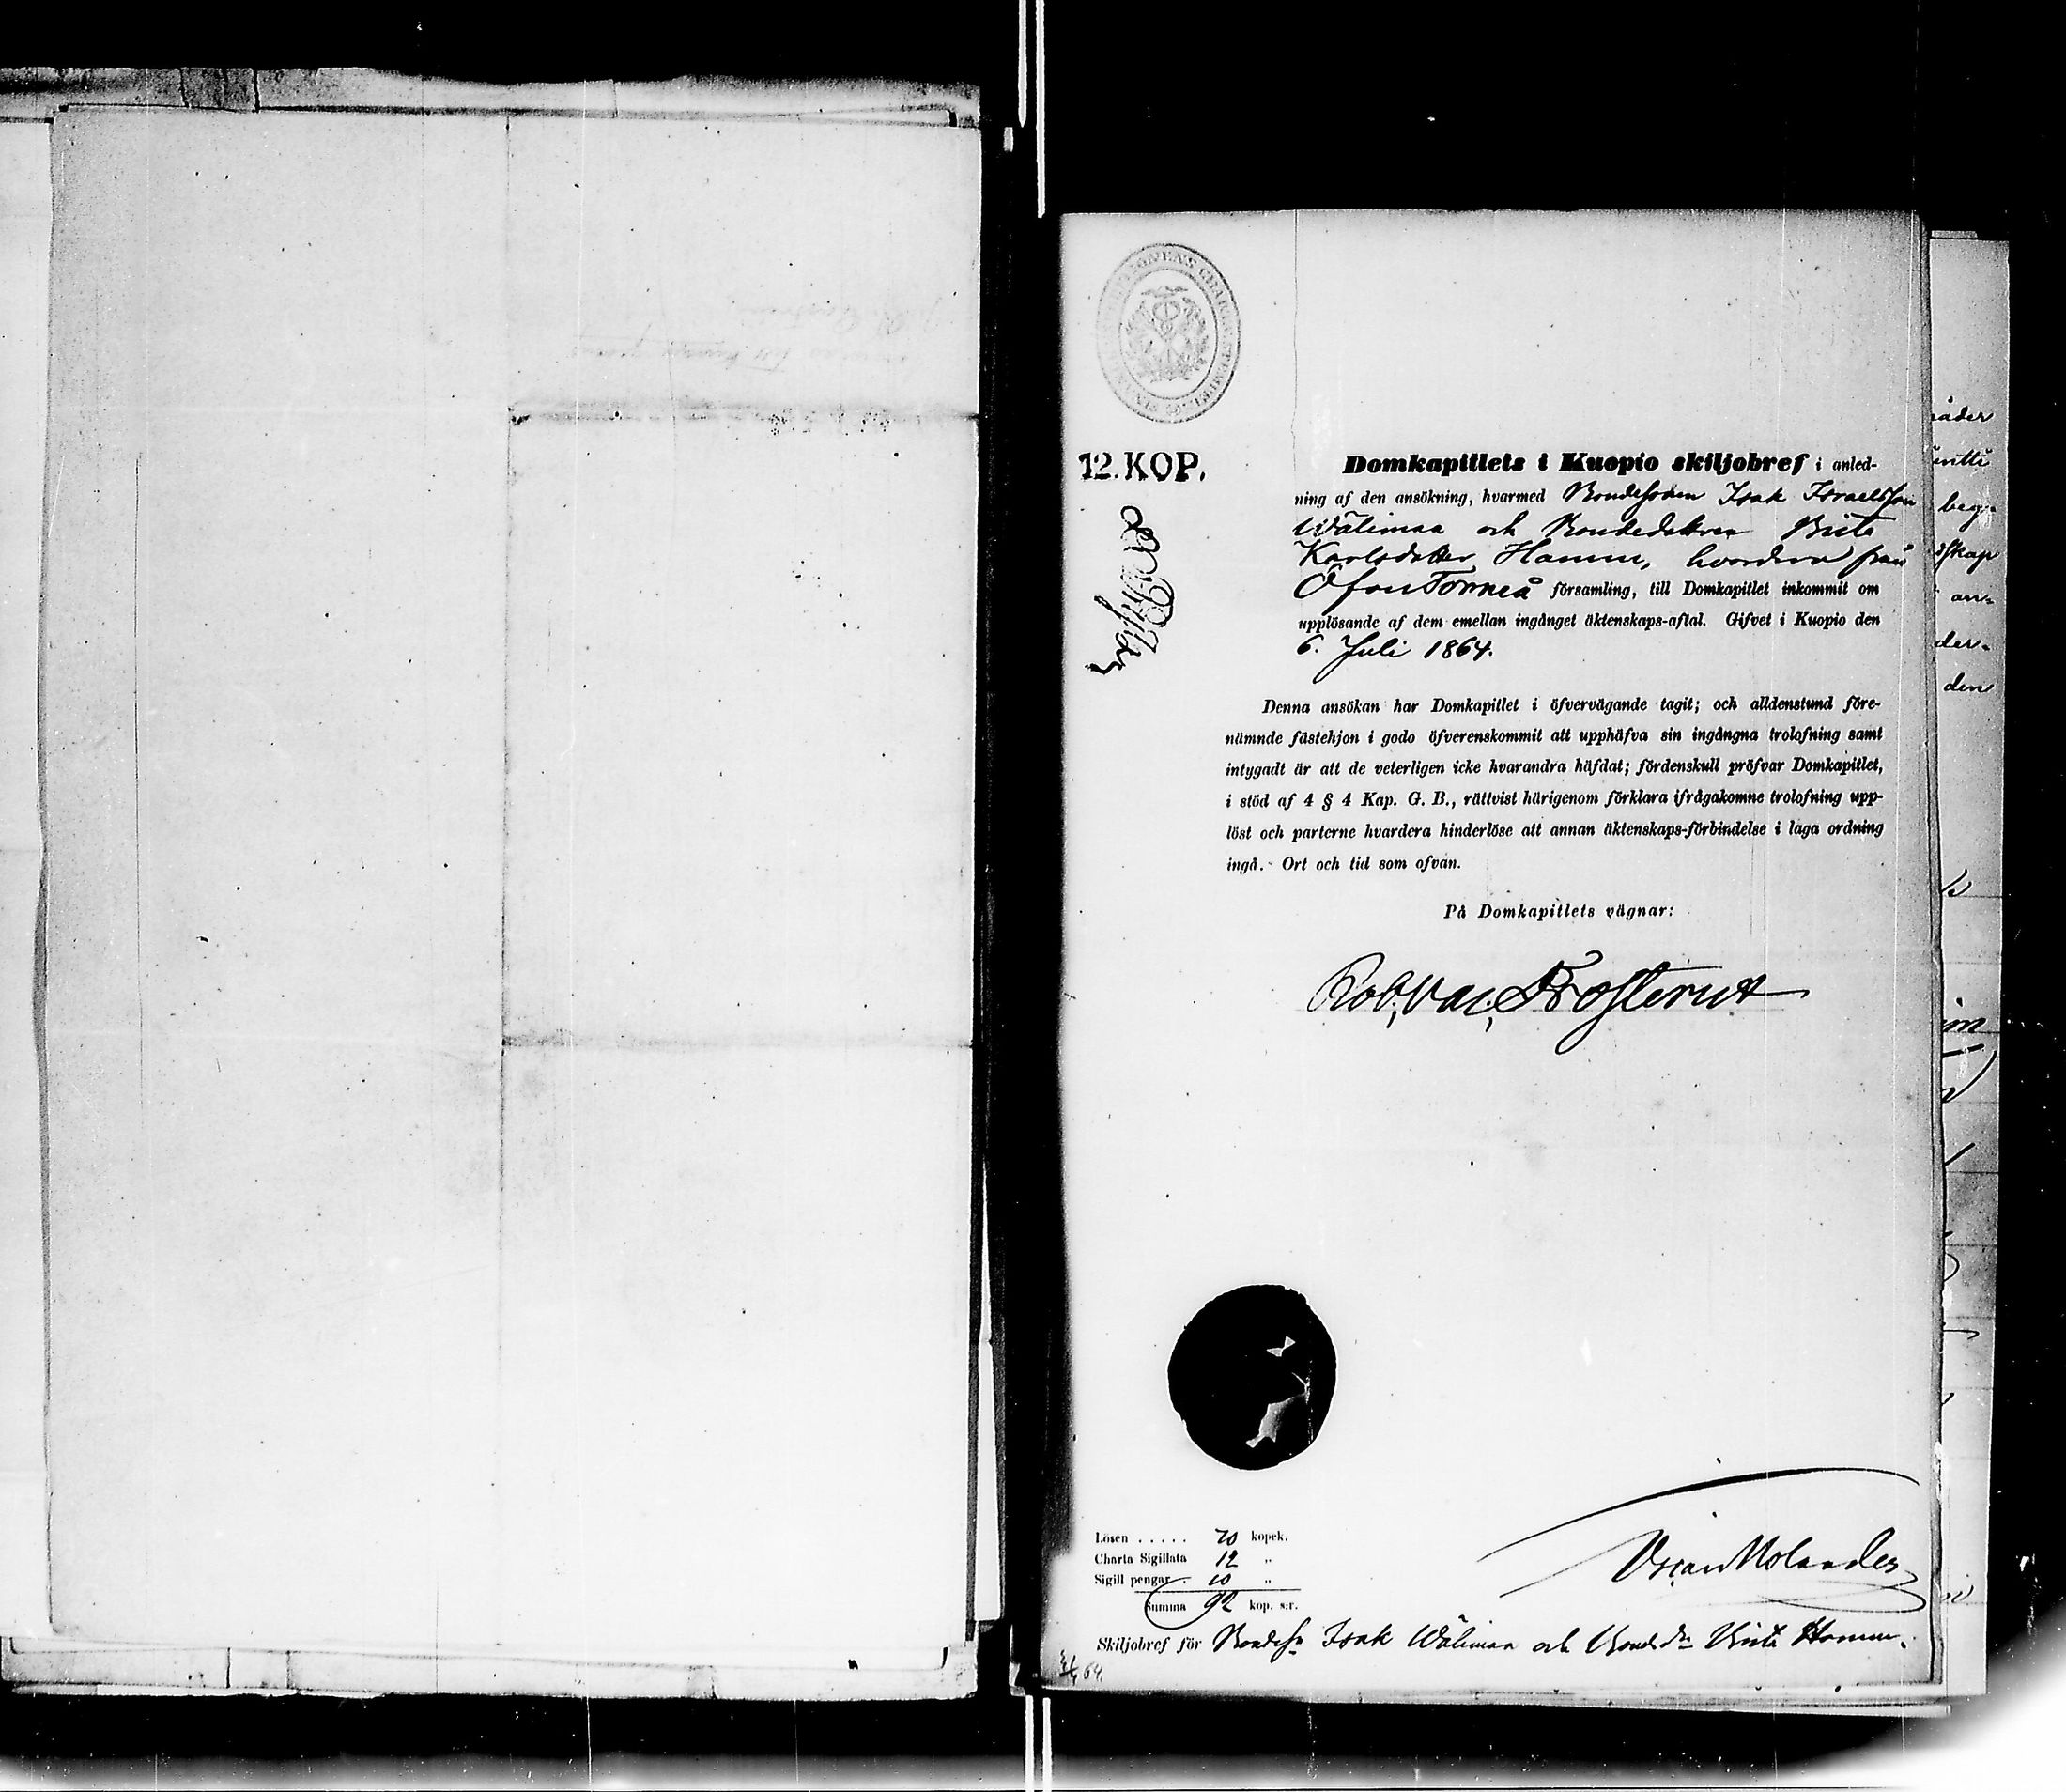 12. KOP.
Domkapitlets i Kuopio skiljobref i anled-
ning af den ansökning, hvarmed Bondesonen Isak Israelsson
Wälimaa och Bondedottren Brita
Karlsdotter Hamm, hvardera från
Öfvertorneå församling, till Domkapitlet inkommit om
upplösande af dem emellan ingånget äktenskaps-aftal. Gifvet i Kuopio den
6. Juli 1864.
Denna ansökan har Domkapitlet i öfvervägande tagit; och alldenstund före-
nämnde fästehjon i godo öfverenskommit att upphäfva sin ingångna trolofning samt
intygadt är att de veterligen icke hvarandra häfdat; fördenskull pröfvar Domkapitlet,
i stöd af 4 § 4 Kap. G. B., rättvist härigenom förklara ifrågakomne trolofning upp-
löst och parterne hvardera hinderlöse att annan äktenskaps-förbindelse i laga ordning
ingå. Ort och tid som ofvan.
På Domkapitlets vägnar:
Rob. Val. Frosterus
Lösen ..... 70 kopek.
Charta Sigillata 12 "
Sigill pengar . 10 "
Summa 92 kop. s:r.
Oscar Molander
Skiljobref för Bondesn Isak Wälimaa och Bondedn Brita Hamm.
åder
beg-
skap
an-
der-
den